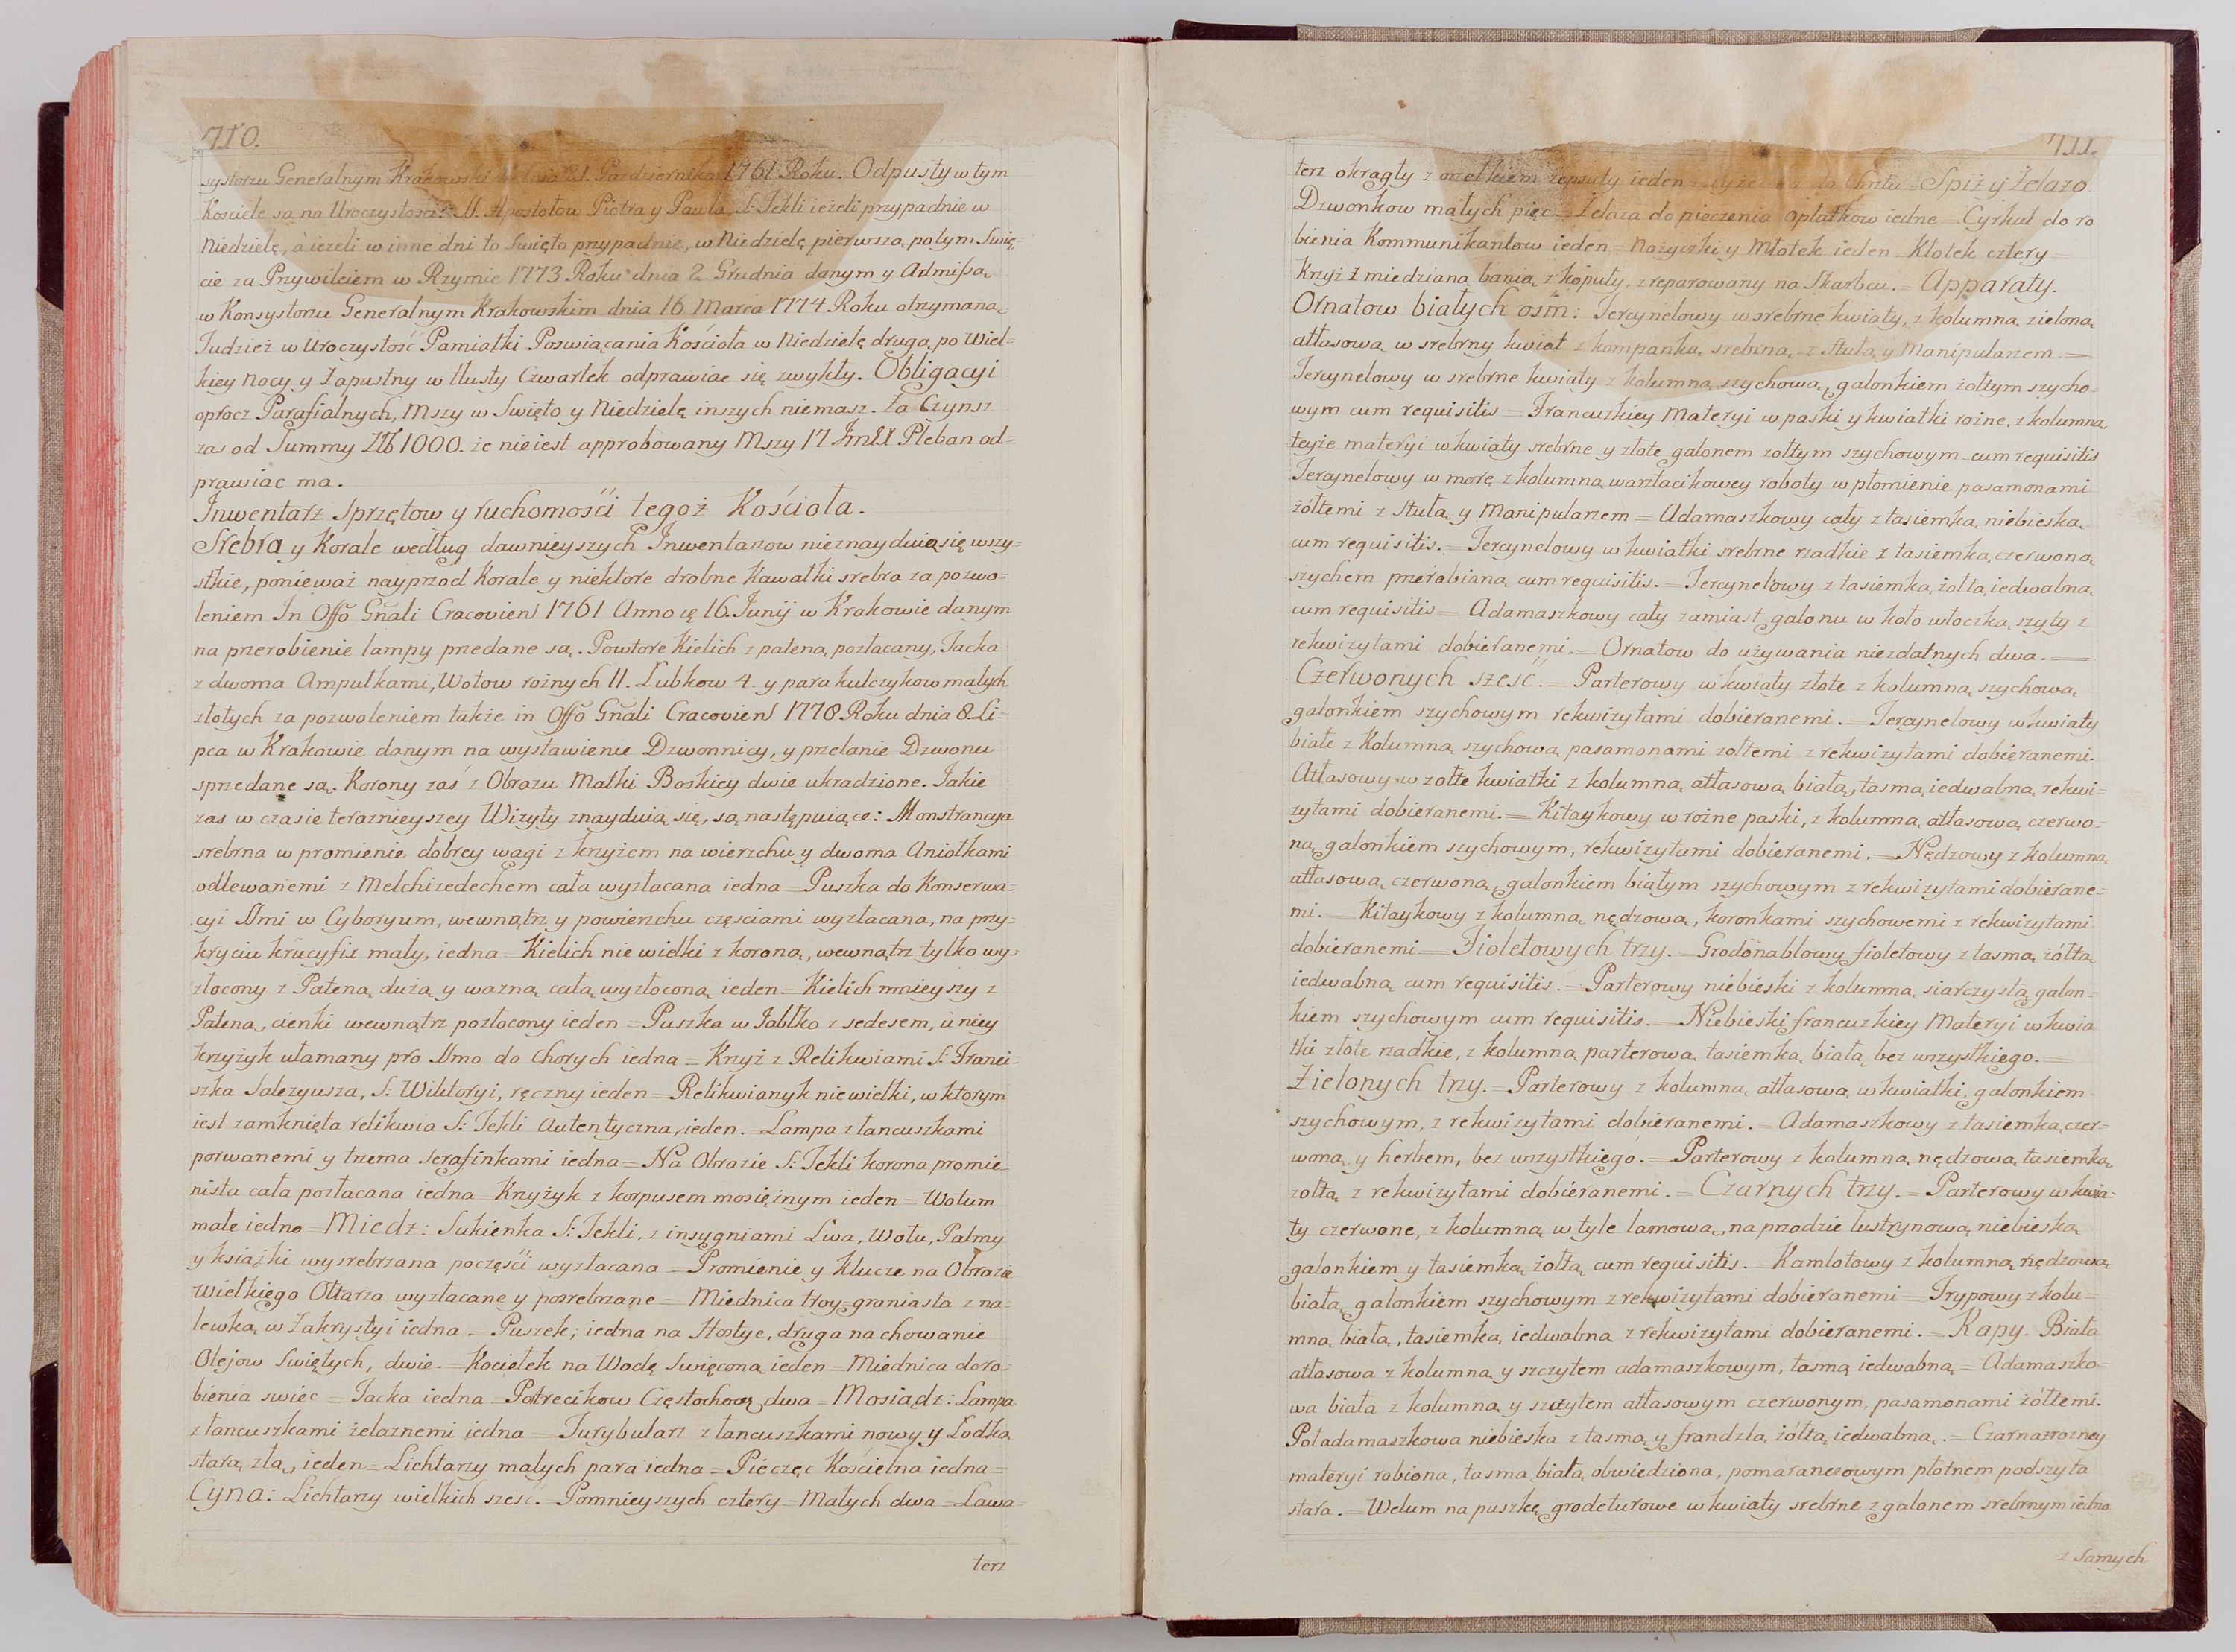 710.
systorzu Generalnym Krakowski dnia 21. Pazdziernika 1761 Roku. Odpusty w tym
Kosciele są na Uroczystości SS. Apostołow Piotra y Pawła, S: Tekli ieżeli przypadnie w
Niedzielę, a ieżeli w inne dni to Swięto przypadnie, w Niedzielę pierwszą po tym Swię=
cie za Przywileiem w Rzymie 1773 Roku dnia 2 Grudnia danym y Admissą
w Konsystorzu Generalnym Krakowskim dnia 16 Marca 1774 Roku otrzymaną.
Tudzież w Uroczystość Pamiątki Poswiącania Kościoła w Niedzielę drugą po Wiel=
kiey Nocy y Zapustny w tłusty Czwartek odprawiac się zwykły. Obligacyi
oprocz Parafialnych, Mszy w Swięto y Niedzielę inszych niemasz. Za Czynsz
zas od Summy Zł 1000. że nieiest approbowany Mszy 17 JmX Pleban od=
prawiac ma.
Inwentarz Sprzętow y ruchomości tegoż Kościoła.
Srebra y Korale według dawnieyszych Inwentarzow nieznayduią się wszy=
stkie, ponieważ nayprzod Korale y niektore drobne Kawałki srebra za pozwo=
leniem In Offō Gñali Cracovien 1761 Anno 16. Junij w Krakowie danym
na przerobienie lampy przedane są. Powtore Kielich z pateną pozłacany, Tacka
z dwoma Ampułkami, Wotow rożnych 11. Lubkow 4. y para kulczykow małych
złotych za pozwoleniem także in Offō Gñali Cracovien 1778 Roku dnia 8. Li=
pca w Krakowie danym na wystawienie Dzwonnicy, y przelanie Dzwonu
sprzedane są. Korony zaś z Obrazu Matki Boskiey dwie ukradzione. Jakie
zas w czasie terazniejszey Wizyty znayduią się, są następuiące: Monstrancya
srebrna w promienie dobrey wagi z krzyżem na wierzchu y dwoma Aniołkami
odlewanemi z Melchizedechem cała wyzłacana iedna = Puszka do Konserwa=
cyi SSmi w Cyboryum, wewnątrz y powierzchu częsciami wyzłacana, na przy=
kryciu krucyfix mały, iedna = Kielich nie wielki z koroną, wewnątrz tylko wy=
złocony z Pateną dużą y ważną całą wyzłoconą ieden = Kielich mnieyszy z
Pateną, cienki wewnątrz pozłocony ieden = Puszka w Jabłko z sedesem, u niey
krzyżyk ułamany pro SSmo do Chorych iedna = Krzyż z Relikwiami S: Franci=
szka Salezyusza, S: Wiktoryi, ręczny ieden = Relikwiarzyk niewielki, w ktorym
iest zamknięta relikwia S: Tekli Autentyczna, ieden. = Lampa z łancuszkami
porwanemi y trzema Serafinkami iedna = Na Obrazie S: Tekli korona promie=
nista cała pozłacana iedna = Krzyżyk z korpusem mosiężnym ieden = Wotum
małe iedno = Miedz: Sukienka S: Tekli, z insygniami Lwa, Wołu, Palmy
y książki wysrebrzana poczęści wyzłacana = Promienie y Klucze na Obrazie
Wielkiego Ołtarza wyzłacane y posrebrzane = Miednica troy=graniasta z na=
lewką w Zakrystyi iedna = Puszek; iedna na Hostye, druga na chowanie
Olejow Swiętych, dwie. = Kociołek na Wodę Swięconą ieden = Miednica do ro=
bienia swiec = Tacka iedna = Potrecikow Częstochow dwa = Mosiądz: Lampa
z łancuszkami żelaznemi iedna = Turybularz z łancuszkami nowy y Łodka
stara, zła, ieden = Lichtarzy małych para iedna = Pieczęc Koscielna iedna =
Cyna: Lichtarzy wielkich szesć. = Pomnieyszych cztery = Małych dwa = Lawa=
terz
711.
terz okrągły z orzełkiem zepsuty ieden do Chrztu = Spiż y Żelazo
Dzwonkow małych pięc = Żelaza do pieczenia opłatkow iedne = Cyrkuł do ro
bienia Kommunikantow ieden = Nożyczki y Młotek ieden Kłotek cztery =
Krzyż z miedzianą banią z kopuły, zreparowany na Skarbcu. = Apparaty.
Ornatow białych ośm: Tercynelowy w srebrne kwiaty, z kolumną zieloną
atłasową w srebrny kwiat z kompanką srebrną, z Stułą y Manipularzem =
Tercynelowy w srebrne kwiaty z kolumną szychową, galonkiem żołtym szycho=
wym cum requisitis = Francuzkiey Materyi w paski y kwiatki rożne, z kolumną
teyże materyi w kwiaty srebrne y złote galonem żołtym szychowym cum requisitis
Tercynelowy w morę z kolumną warztacikowey roboty w płomienie pasamonami
żółtemi z Stułą y Manipularzem = Adamaszkowy cały z tasiemką niebieską
cum requisitis. = Tercynelowy w kwiatki srebrne rzadkie z tasiemką czerwoną
szychem przerabianą cum requisitis. = Tercynelowy z tasiemką żołtą iedwabną
cum requisitis = Adamaszkowy cały zamiast galonu w koło włoczką szyty z
rekwizytami dobieranemi. = Ornatow do używania niezdatnych dwa. =
Czerwonych szesć. = Parterowy w kwiaty złote z kolumną szychową
galonkiem szychowym rekwizytami dobieranemi. = Tercynelowy w kwiaty
białe z Kolumną szychową pasamonami żołtemi z rekwizytami dobieranemi.
Atłasowy w żołte kwiatki z kolumną atłasową białą, tasmą iedwabną rekwi=
zytami dobieranemi. = Kitaykowy w rożne paski, z kolumną atłasową czerwo=
ną, galonkiem szychowym, rekwizytami dobieranemi. = Nędzowy z kolumną
atłasową czerwoną, galonkiem białym szychowym z rekwizytami dobierane=
mi. = Kitaykowy z kolumną nędzową, koronkami szychowemi z rekwizytami
dobieranemi = Fioletowych trzy. = Grodonablowy fioletowy z tasmą żółtą
iedwabną cum requisitis. = Parterowy niebieski z kolumną siarczystą galon=
kiem szychowym cum requisitis. = Niebieski francuzkiey Materyi w kwia
tki złote rzadkie, z kolumną parterową tasiemką białą bez wszystkiego. =
Zielonych trzy. = Parterowy z kolumną atłasową w kwiatki, galonkiem
szychowym, z rekwizytami dobieranemi. = Adamaszkowy z tasiemką czer=
woną, y herbem, bez wszystkiego. = Parterowy z kolumną nędzową tasiemką
zołtą z rekwizytami dobieranemi. = Czarnych trzy. = Parterowy w kwia=
ty czerwone, z kolumną w tyle lamową, na przodzie lustrynową niebieską
galonkiem y tasiemką żołtą cum requisitis. = Kamlotowy z kolumną nędzową
białą, galonkiem szychowym z rekwizytami dobieranemi = Trypowy z kolu=
mną białą, tasiemką iedwabną z rekwizytami dobieranemi. = Kapy. Biała
atłasowa z kolumną y szczytem adamaszkowym, tasmą iedwabną = Adamaszko=
wa biała z kolumną y szczytem atłasowym czerwonym, pasamonami żółtemi.
Poładamaszkowa niebieska z tasmą y frandzlą żółtą iedwabną. = Czarna z rozney
materyi robiona, tasmą białą obwiedziona, pomaranczowym płotnem podszyta
stara. = Welum na puszkę grodeturowe w kwiaty srebrne z galonem srebrnym iedno
z samych